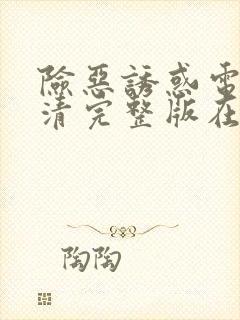 險惡誘惑電
清完整版在
陶陶